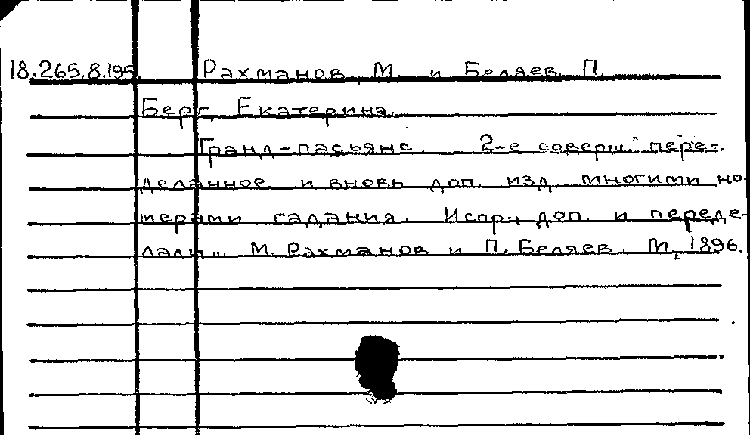 18.265.8.195. Рахманов, М. и Беляев П.
Берг, Екатерина.
Гранд-пасьянс. 2-е соверш. пере-
деланное и вновь доп. изд. многими но-
мерами гадания. Испр., доп. и переде-
лали М. Рахманов и П. Беляев. М., 1896.